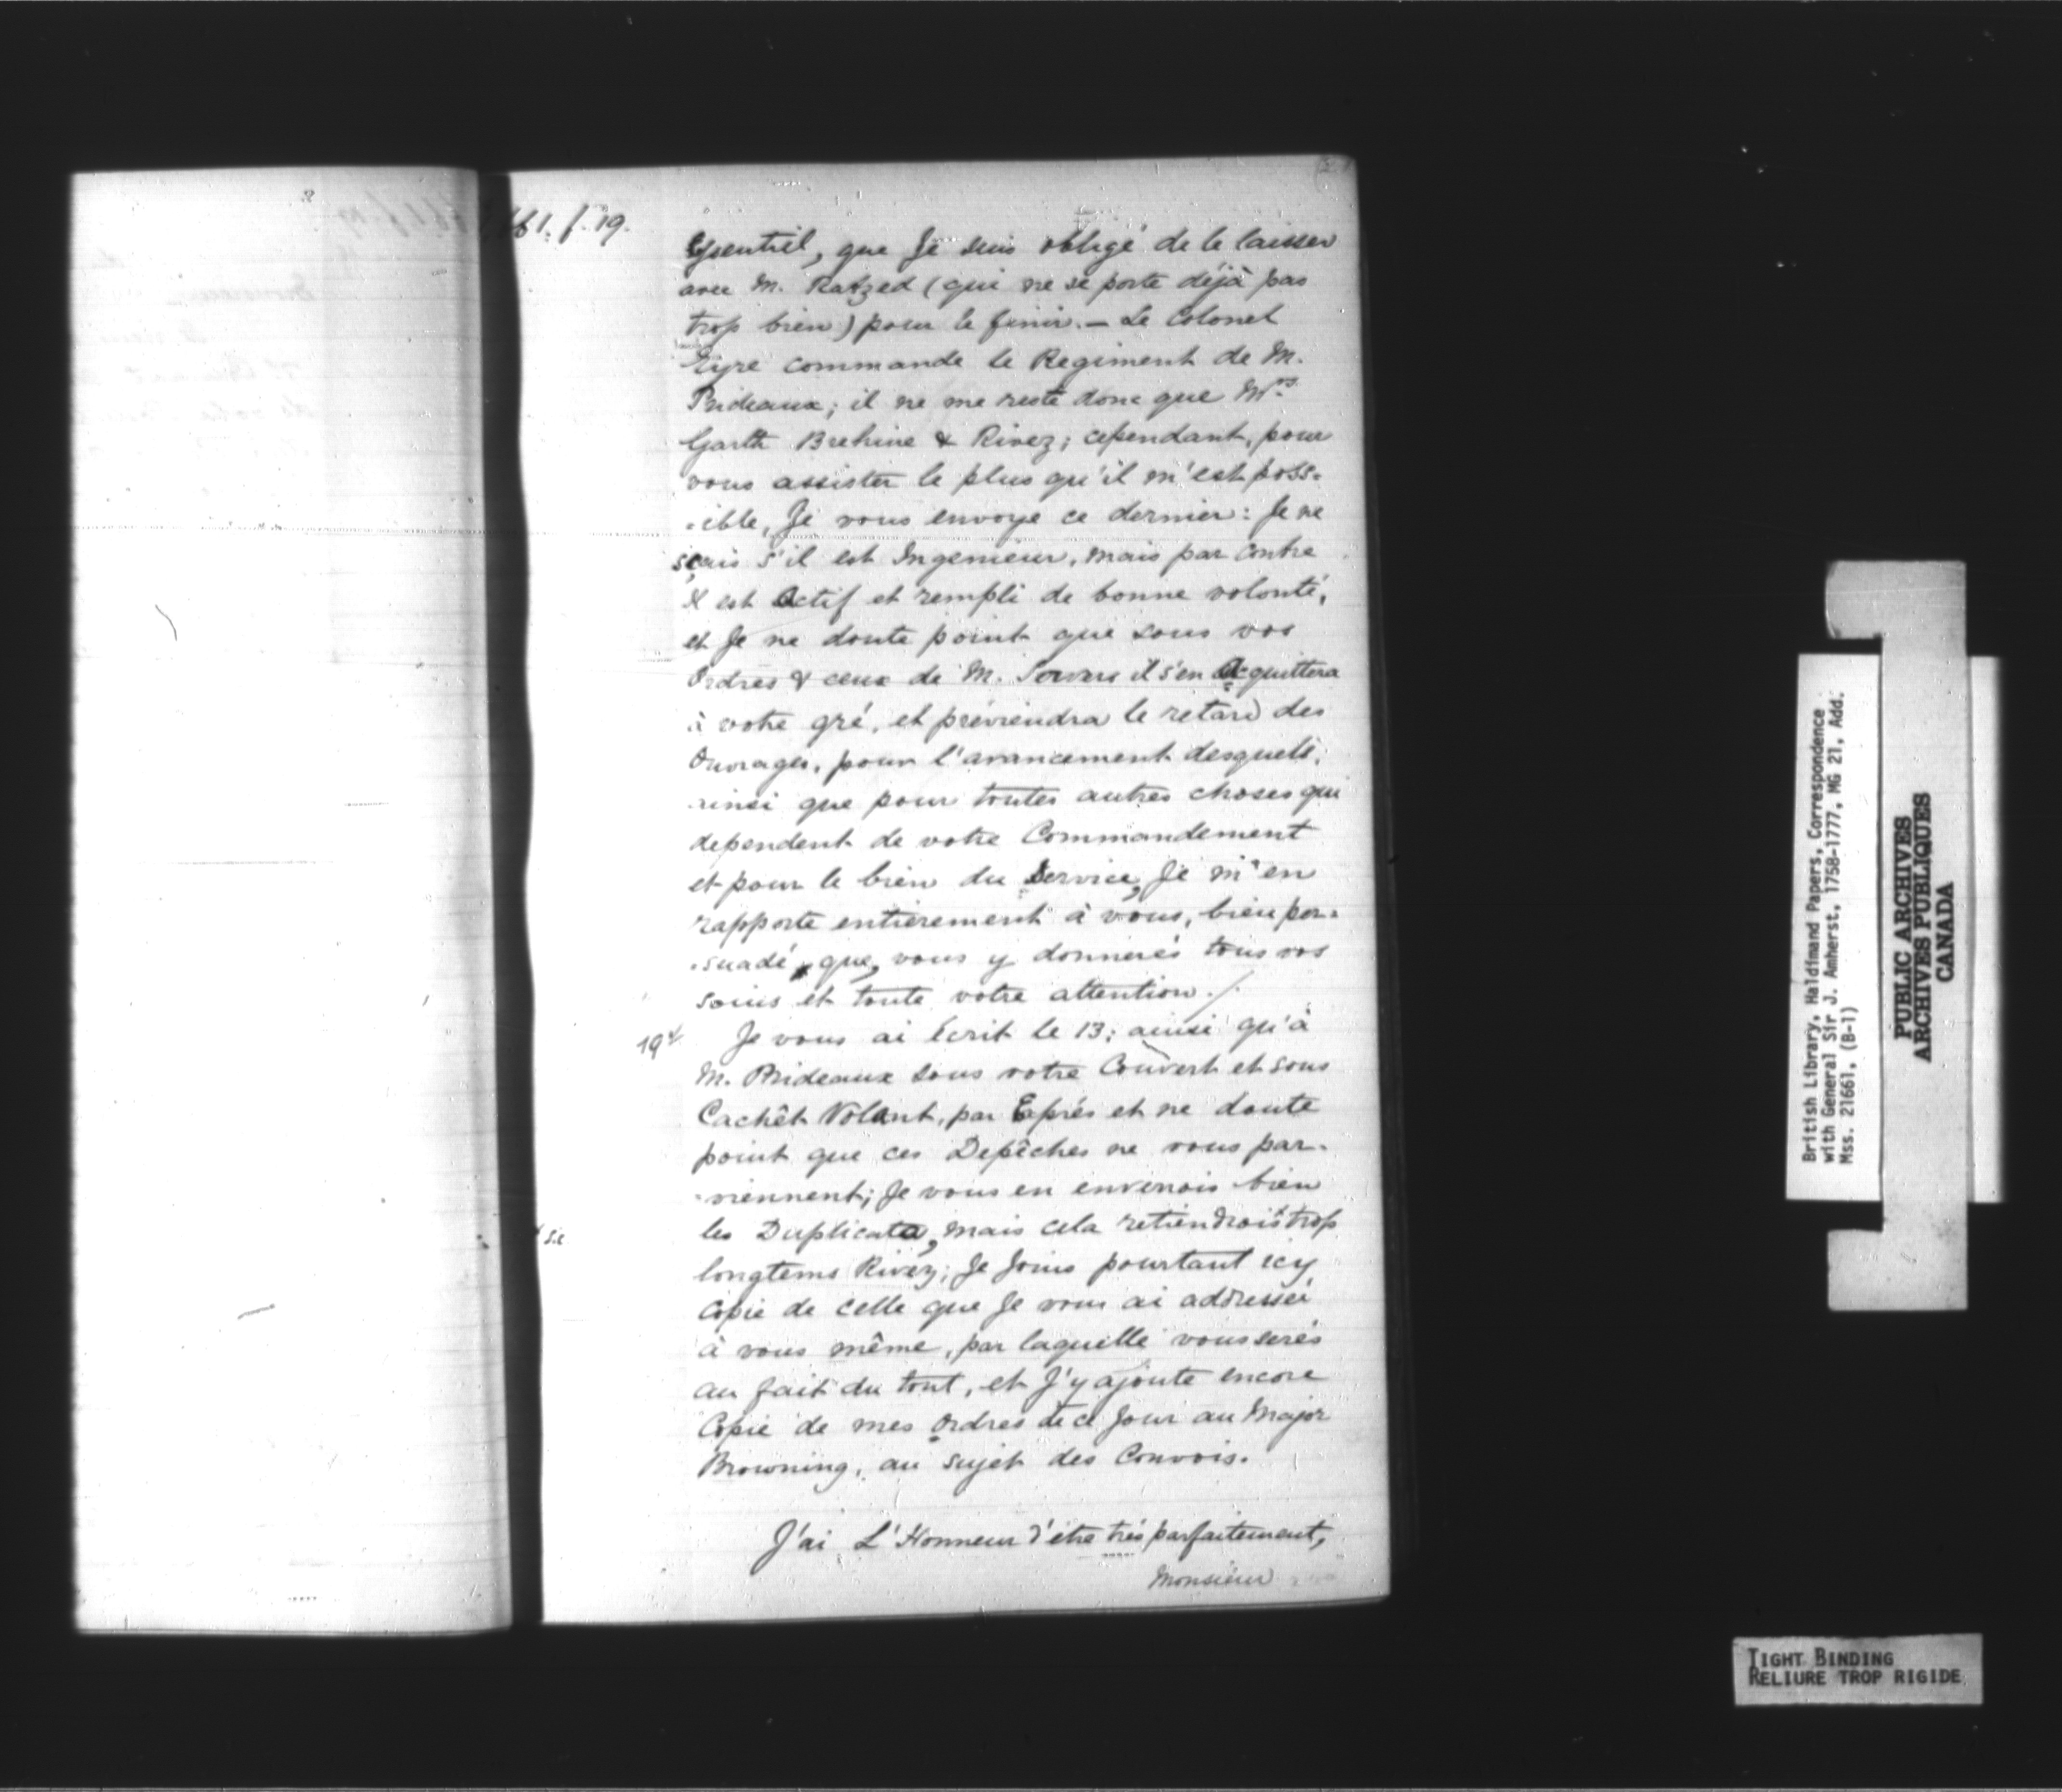 61. f. 19.
Essentiel, que Je suis obligé de le laisser
avec M. Ratzed (qui ne se porte déjà pas
trop bien) pour le finir. — Le Colonel
Eyre commande le Regiment de M.
Prideaux; il ne me reste donc que Mrs
Garth Brehine & Rivez; cependant, pour
vous assister le plus qu'il m'est poss-
-ible, Je vous envoye ce dernier: Je ne
sçais s'il est Ingenieur, mais par contre
Il est Actif et rempli de bonne volonté,
et Je ne doute point que sous vos
Ordres & ceux de M. Sowers il s'en Acquittera
à votre gré, et préviendra le retard des
Ouvrages, pour l'avancement desquels,
ainsi que pour toutes autres choses qui
dependent de votre Commandement
et pour le bien du Service, Je m'en
rapporte entièrement à vous, bien per-
-suadé, que, vous y donnerés tous vos
soins et toute votre attention./.
19
Je vous ai Ecrit le 13: ainsi qu'à
M. Prideaux sous votre Couvert et sous
Cachêt Volant, par Exprés et ne doute
point que ces Depêches ne vous par-
-viennent; Je vous en enverrois bien
les Duplicata, mais cela retiendroit trop
sic
longtems Rivez; Je Joins pourtant icy
Copie de celle que Je vous ai addressée
à vous même, par laquelle vous serés
au fait du tout, et J'y ajoute encore
Copie de mes Ordres de ce Jour au Major
Browning, au sujet des Convois.
J'ai L'Honneur d'être très parfaitement,
Monsieur
British Library, Haldimand Papers, Correspondence
with General Sir J. Amherst, 1758-1777, MG 21, Add.
Mss. 21661, (B-1)
PUBLIC ARCHIVES
ARCHIVES PUBLIQUES
CANADA
TIGHT BINDING
RELIURE TROP RIGIDE